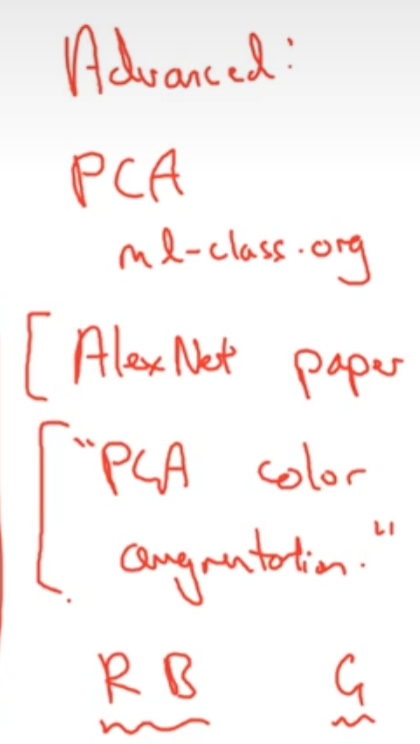 Advanced:
PCA
ml-class.org
[ AlexNet paper
[ "PCA color
augmentation."
R B G